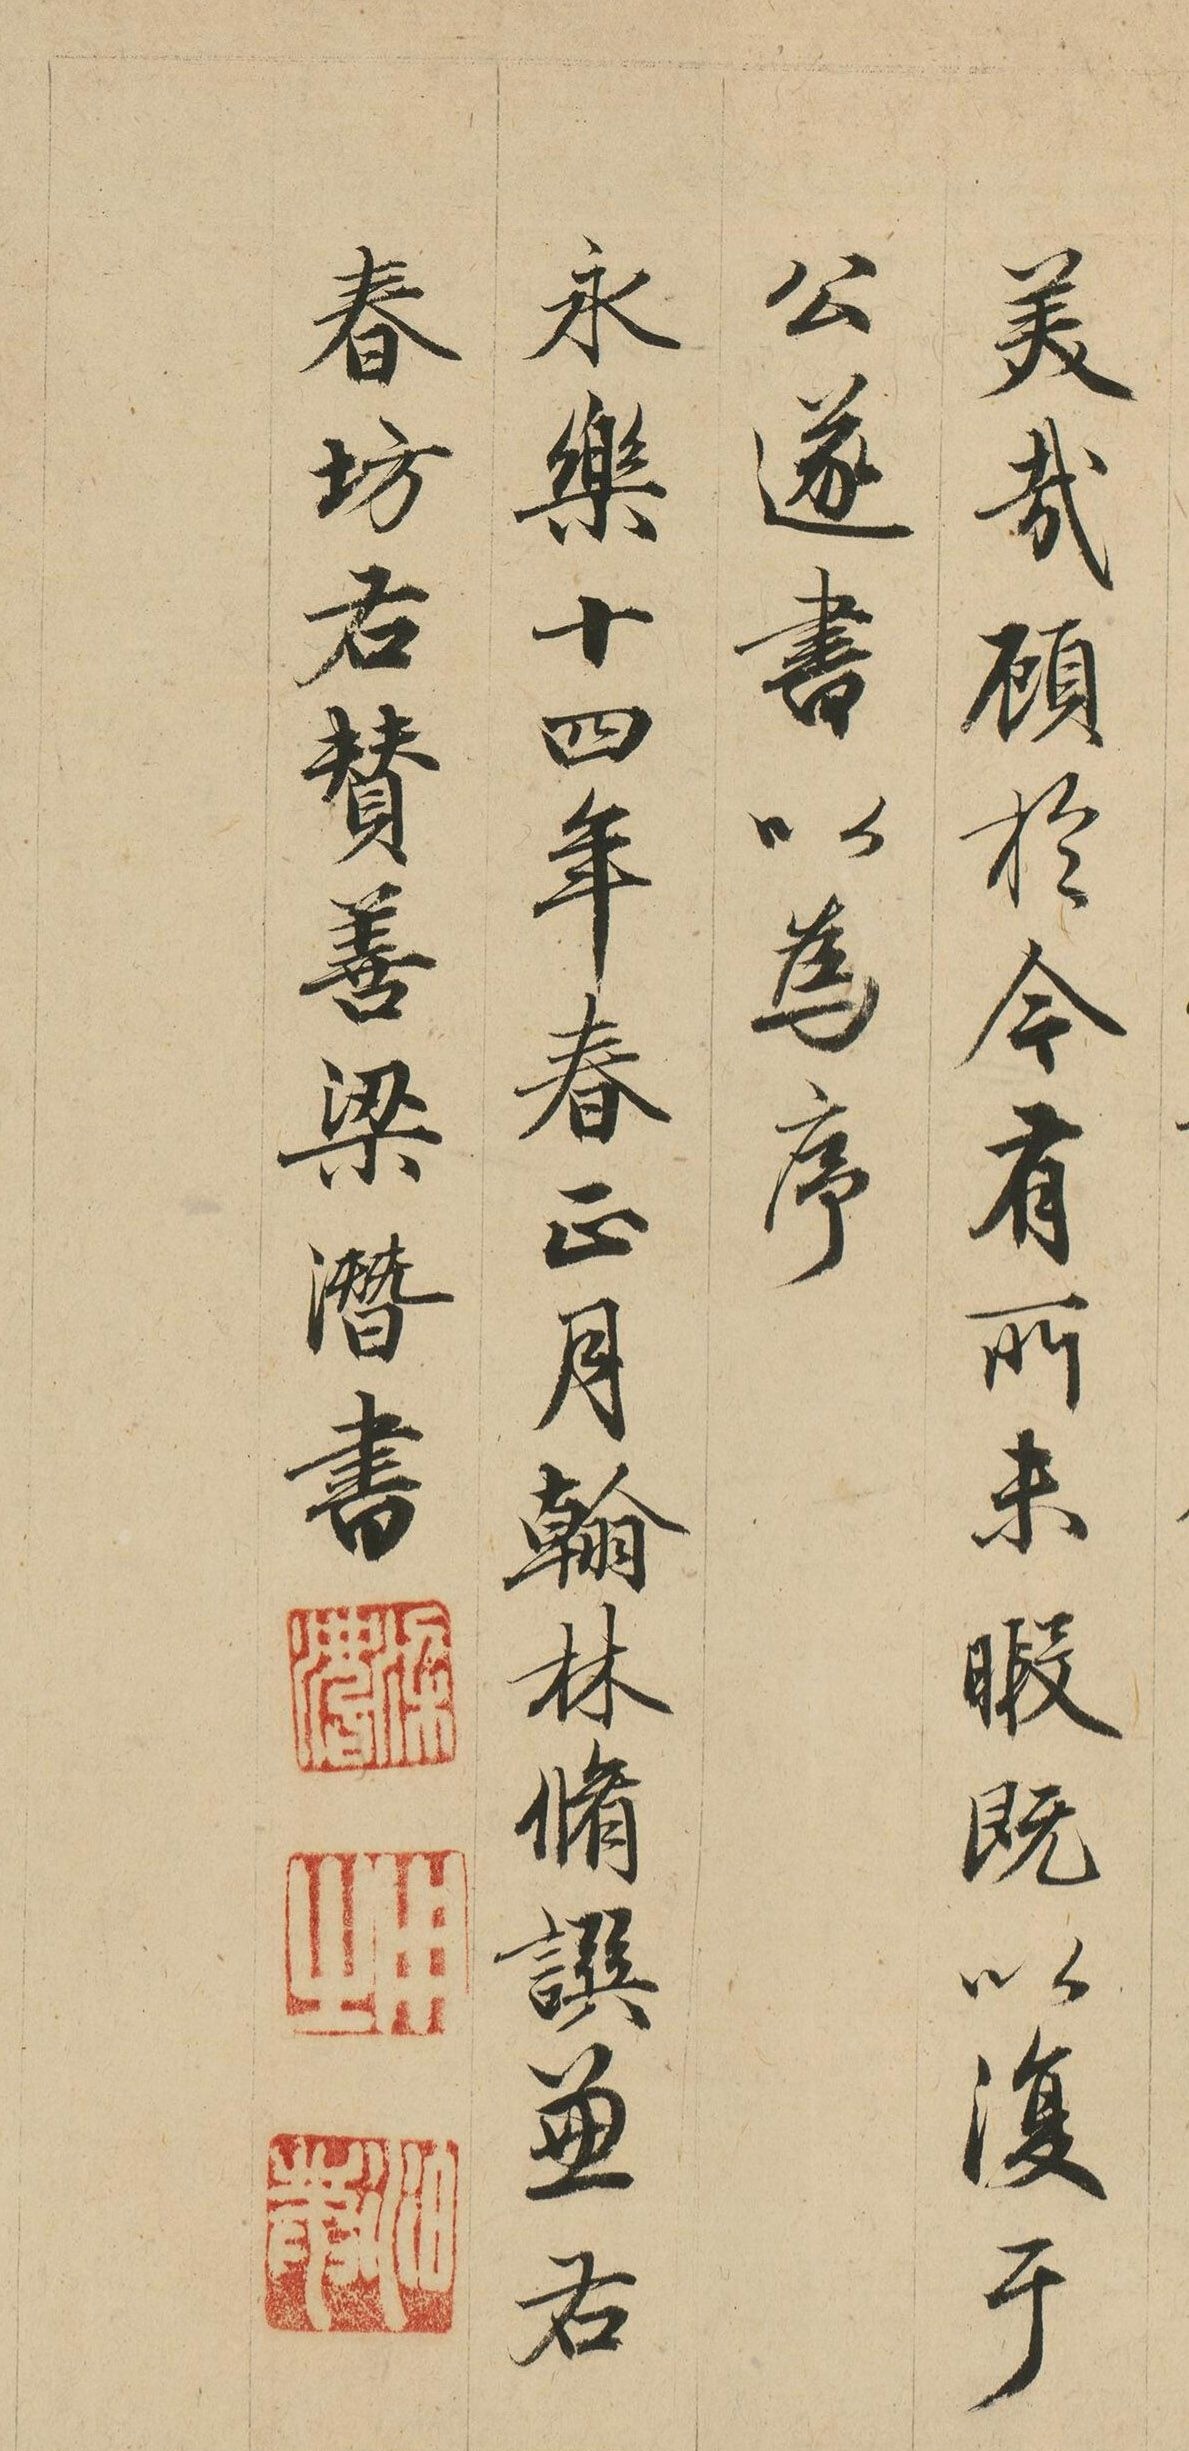 美哉顧於今有所未暇既以復于
公遂書以為序
永樂十四年春正月翰林脩譔兼右
春坊右贊善梁潛書
梁潛
用之